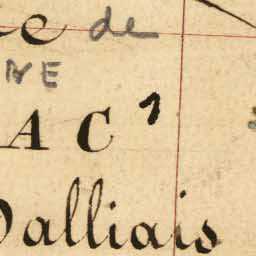 de
NE
AC¹
Dalliais